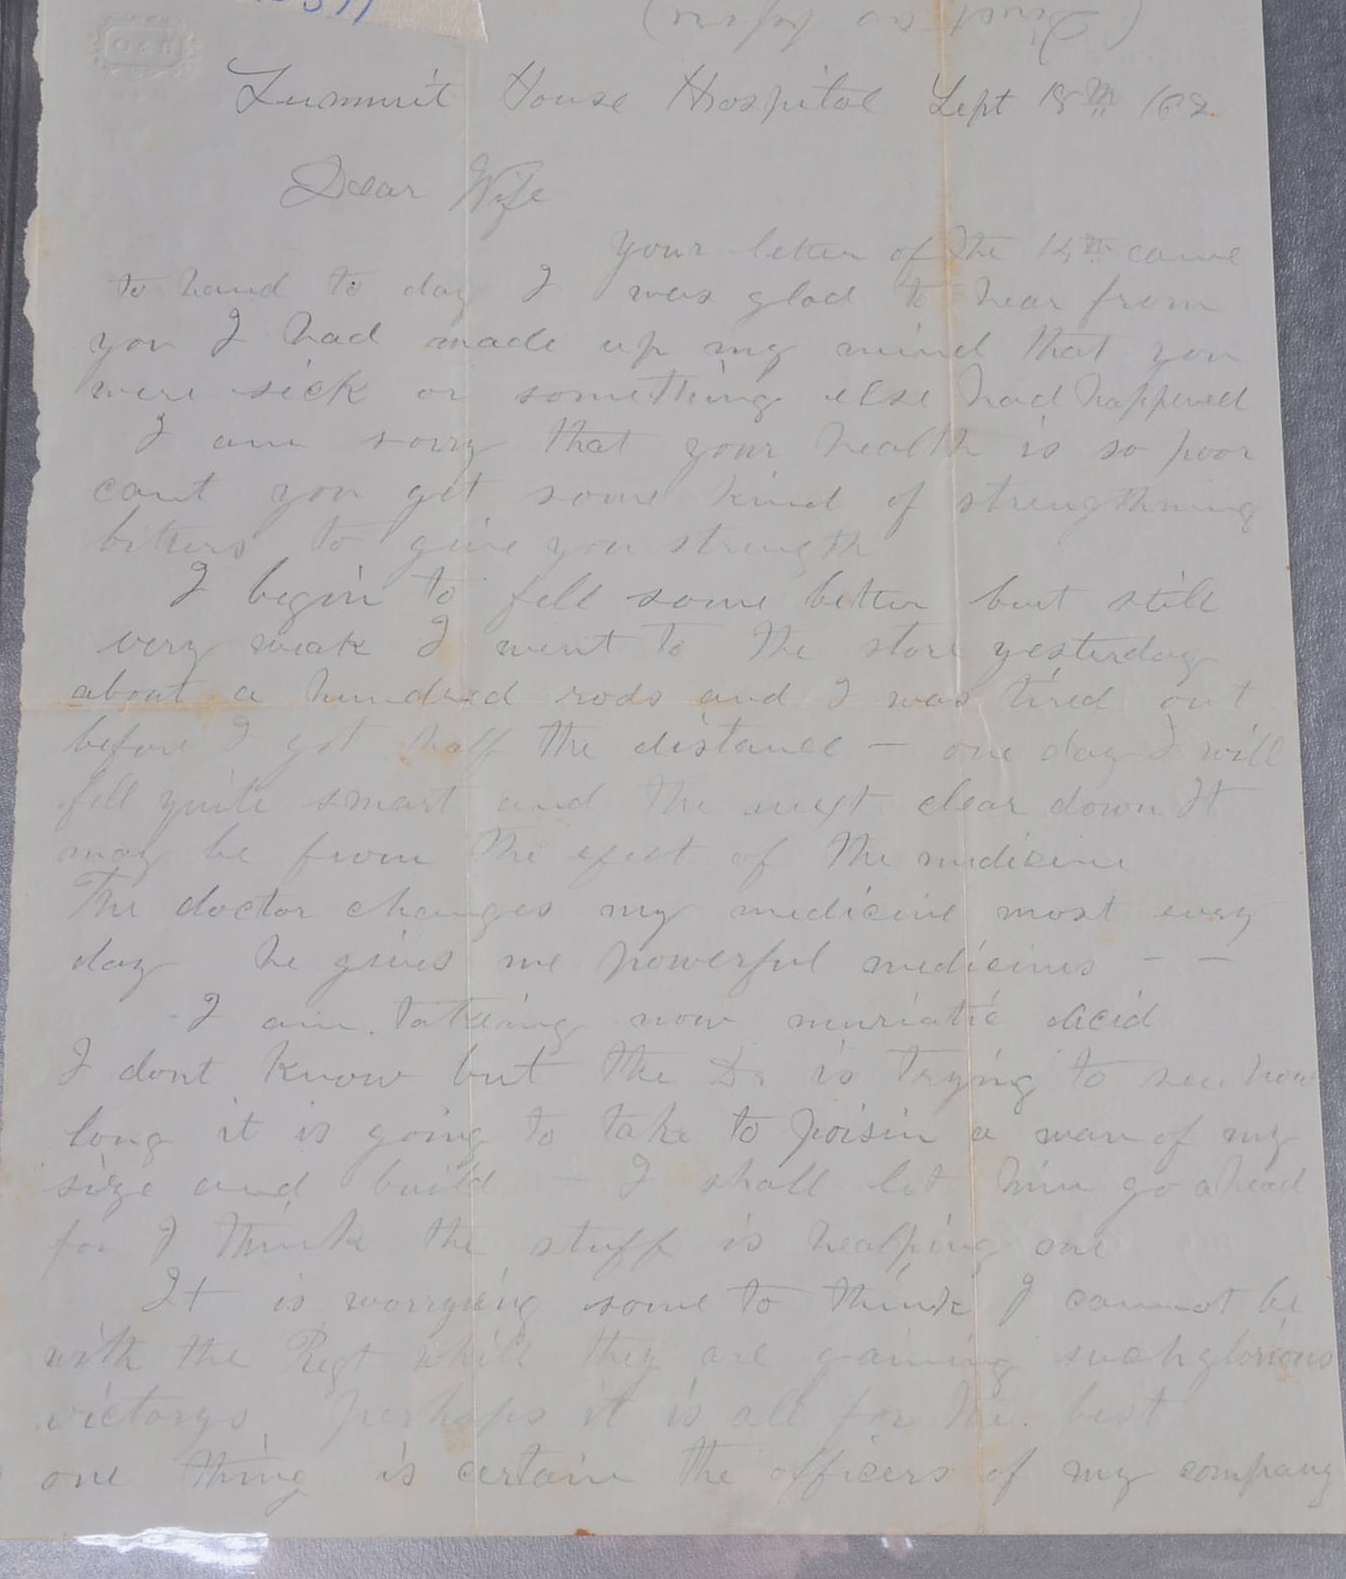 (Direct as before)
Summit House Hospital Sept 18th 162.
Dear Wife
your letter of the 14th came
to hand to day I was glad to hear from
you I had made up my mind that you
were sick or something else had happened
I am sorry that your health is so poor
cant you get some kind of strengthning
bitters to give you strength
I begin to fell some better but still
very weak I went to the store yesterday
about a hundred rods and I was tired out
before I got half the distance — one day I will
fell quite smart and the next clear down It
may be from the efect of the medicine
The doctor changes my medicine most every
day he gives me powerful medicines - -
I am takeing now muriatic acid
I dont know but the Dr is trying to see how
long it is going to take to poisin a man of my
size and build - I shall let him go ahead
for I think the stuff is healping me
It is worrying some to think I cannot be
with the Regt while they are gaining such glorious
victorys perhaps it is all for the best
one thing is certain the officers of my company